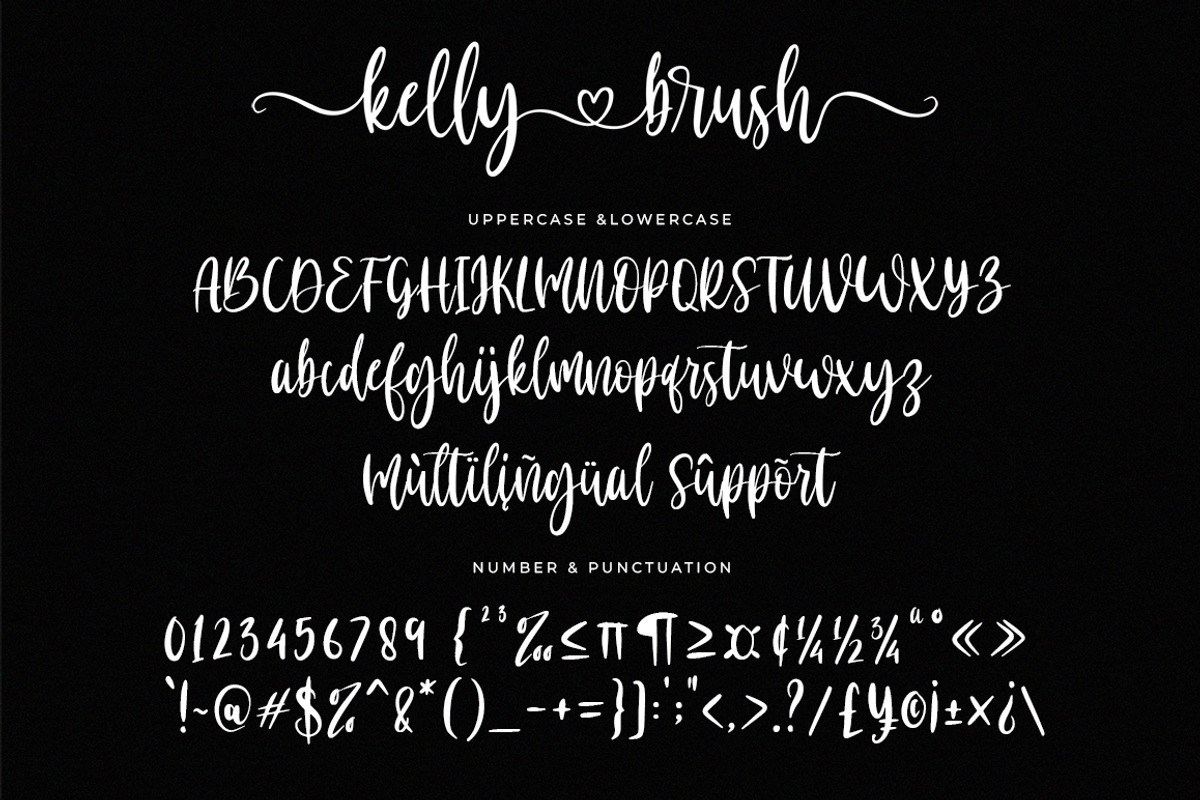 kelly brush
UPPERCASE &LOWERCASE
ABCDEFGHIJKLMNOPQRSTUVWXYZ
abcdefghijklmnopqrstuvwxyz
mùltïlịñgüal sûppõrt
NUMBER & PUNCTUATION
0123456789 {²³‰≤π¶≥¤¢¼½¾ªº«»
`!~@#$%^&*()_-+=}]:';"<,>.?/£¥©¡±×¿\